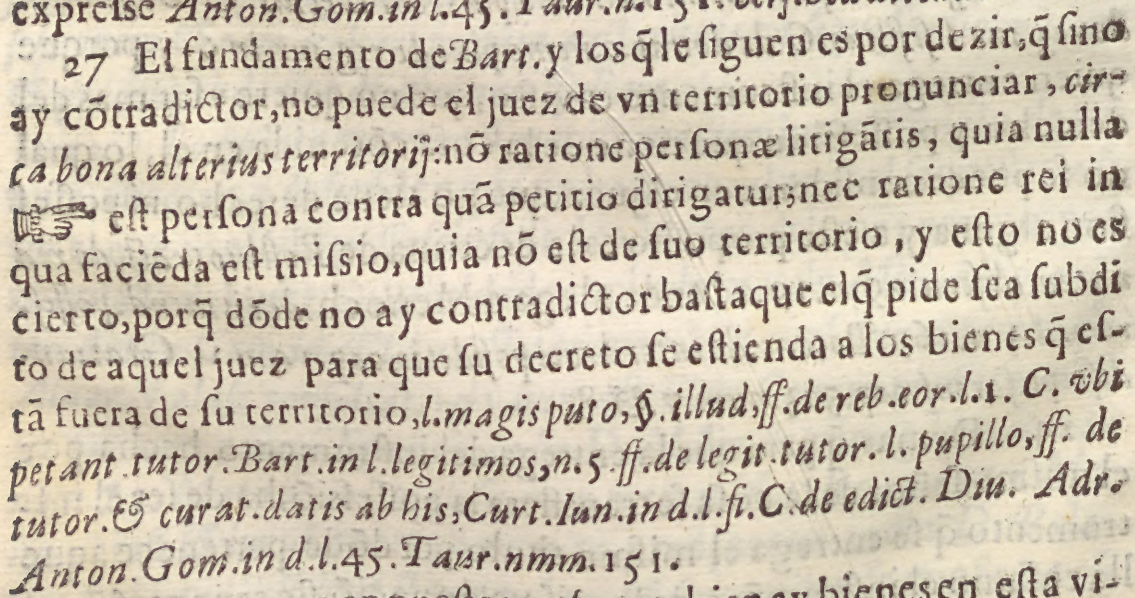 expreſse Anton.Gom.in l.45.Taur.n.151.
27 El fundamento de Bart. y los q̃ le ſiguen es por dezir, q̃ ſino
ay cõtradictor, no puede el juez de vn territorio pronunciar, cir-
ca bona alterius territorij: nõ ratione perſonæ litigãtis, quia nulla
☞ eſt perſona contra quã petitio dirigatur; nec ratione rei in
qua faciẽda eſt miſsio, quia nõ eſt de ſuo territorio, y eſto no es
cierto, porq̃ dõde no ay contradictor baſta que el q̃ pide ſea ſubdi
to de aquel juez para que ſu decreto ſe eſtienda a los bienes q̃ eſ-
tã fuera de ſu territorio, l.magis puto, §.illud, ff.de reb.eor.l.1. C. vbi
petant.tutor.Bart.in l.legitimos, n.5.ff.de legit.tutor.l.pupillo, ff. de
tutor.& curat.datis ab his, Curt.Iun.in d.l.fi.C.de edict. Diu. Adr.
Anton.Gom.in d.l.45.Taur.nmm.151.
ay bienes en eſta vi-